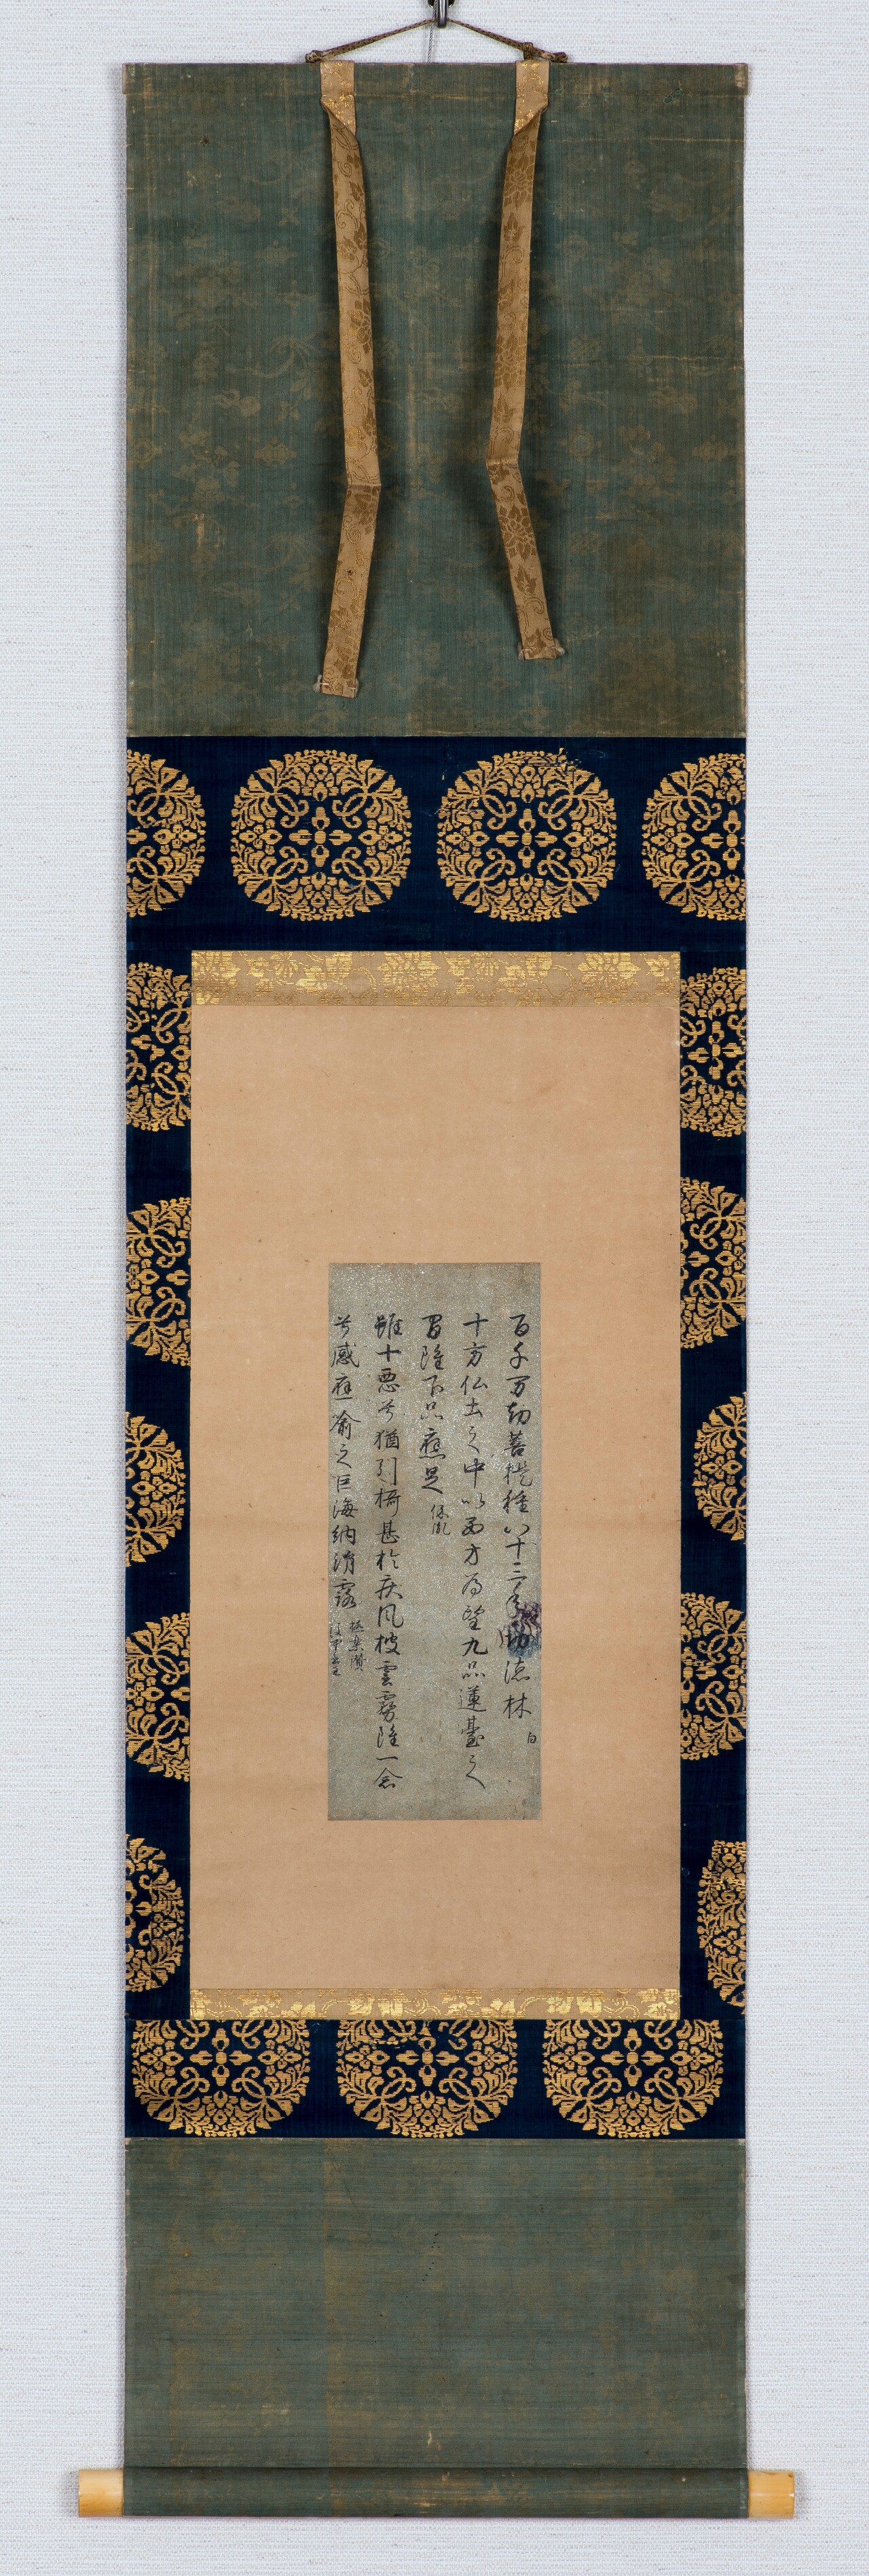 百千万劫菩提種八十三年功徳林 白
十方仏土之中以西方為望九品蓮臺之
間雖下品應足 保胤
雖十悪兮猶引摂甚於疾風披雲霧雖一念
兮感應喩之巨海納涓露
極楽讃
後中書王